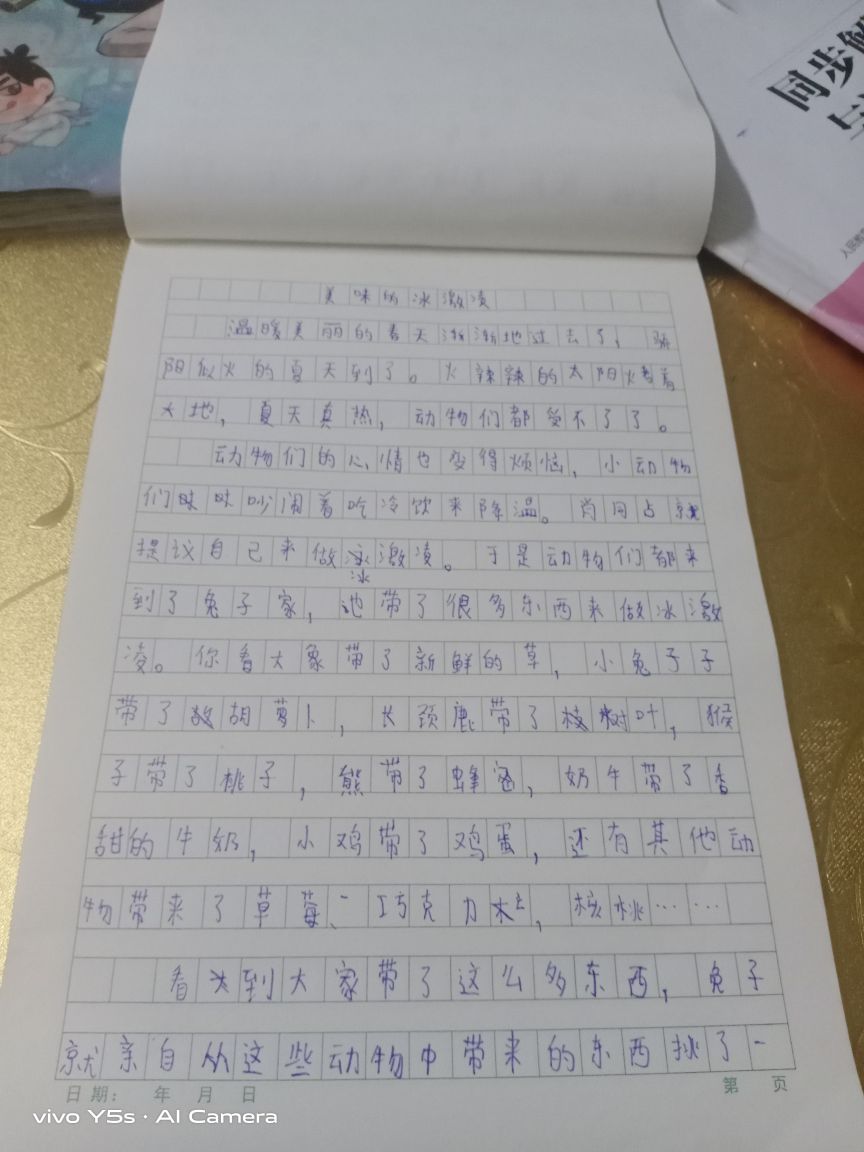 同步解
与
人民教
美味的冰激凌
温暖美丽的春天渐渐地过去了，骄
阳似火的夏天到了。火辣辣的太阳烤着
大地，夏天真热，动物们都受不了了。
动物们的心情也变得烦恼，小动物
们味味吵闹着吃冷饮来降温。
提议自己来做冰激凌。于是动物们都来
到了兔子家，他带了很多东西来做冰激
凌。你看大象带了新鲜的草，小兔子子
带了胡萝卜，长颈鹿带了树叶，猴
子带了桃子，熊带了蜂蜜，奶牛带了香
甜的牛奶，小鸡带了鸡蛋，还有其他动
物带来了草莓、巧克力，核桃……
看到大家带了这么多东西，兔子
就亲自从这些动物中带来的东西挑了一
日期： 年 月 日
第 页
vivo Y5s · AI Camera